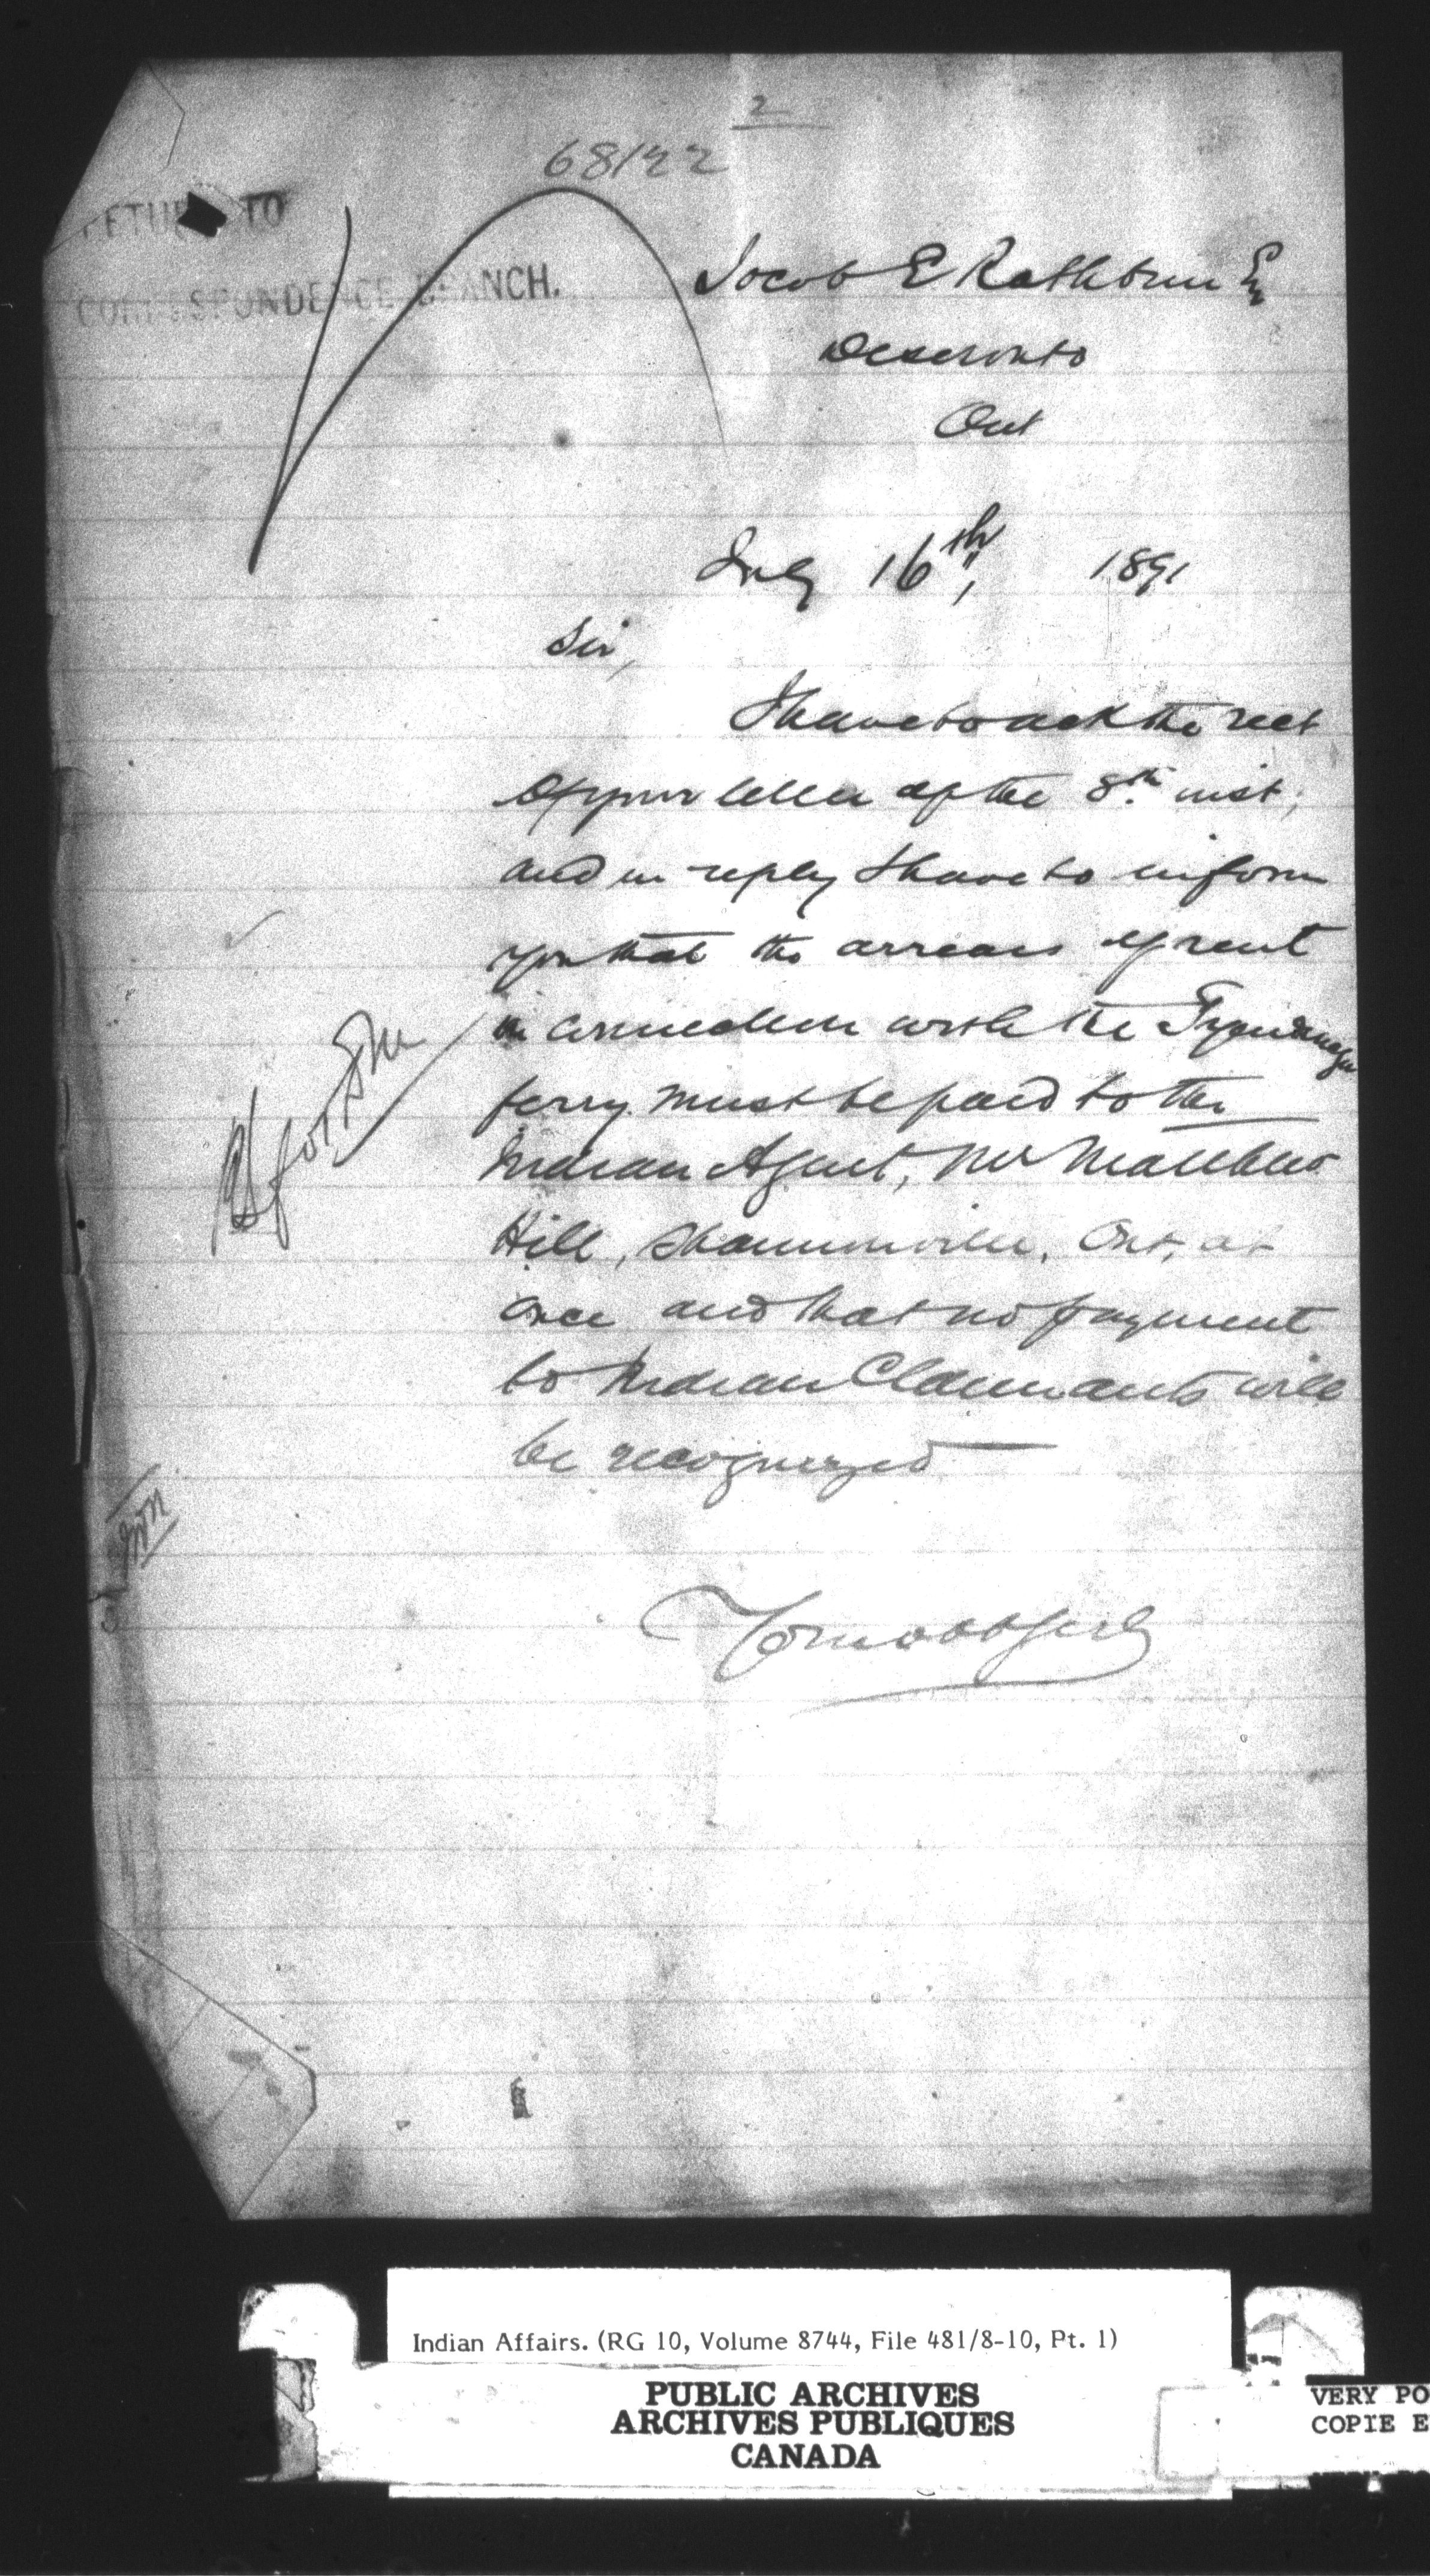 2
68122
RETURN TO
CORRESPONDENCE BRANCH.
Jacob E Rathbun Eq
Deseronto
Ont
July 16th, 1891
Sir,
I have to ack the rect
of your letter of the 8th inst,
and in reply I have to inform
you that the arrears of rent
in connection with the Tyendinaga
ferry must be paid to the
Indian Agent, Mr Matthew
Hill, Shannonville, Ont, at
once and that no payment
to Indian Claimants will
be recognized
Indian Affairs. (RG 10, Volume 8744, File 481/8-10, Pt. 1)
PUBLIC ARCHIVES
ARCHIVES PUBLIQUES
CANADA
VERY PO
COPIE E